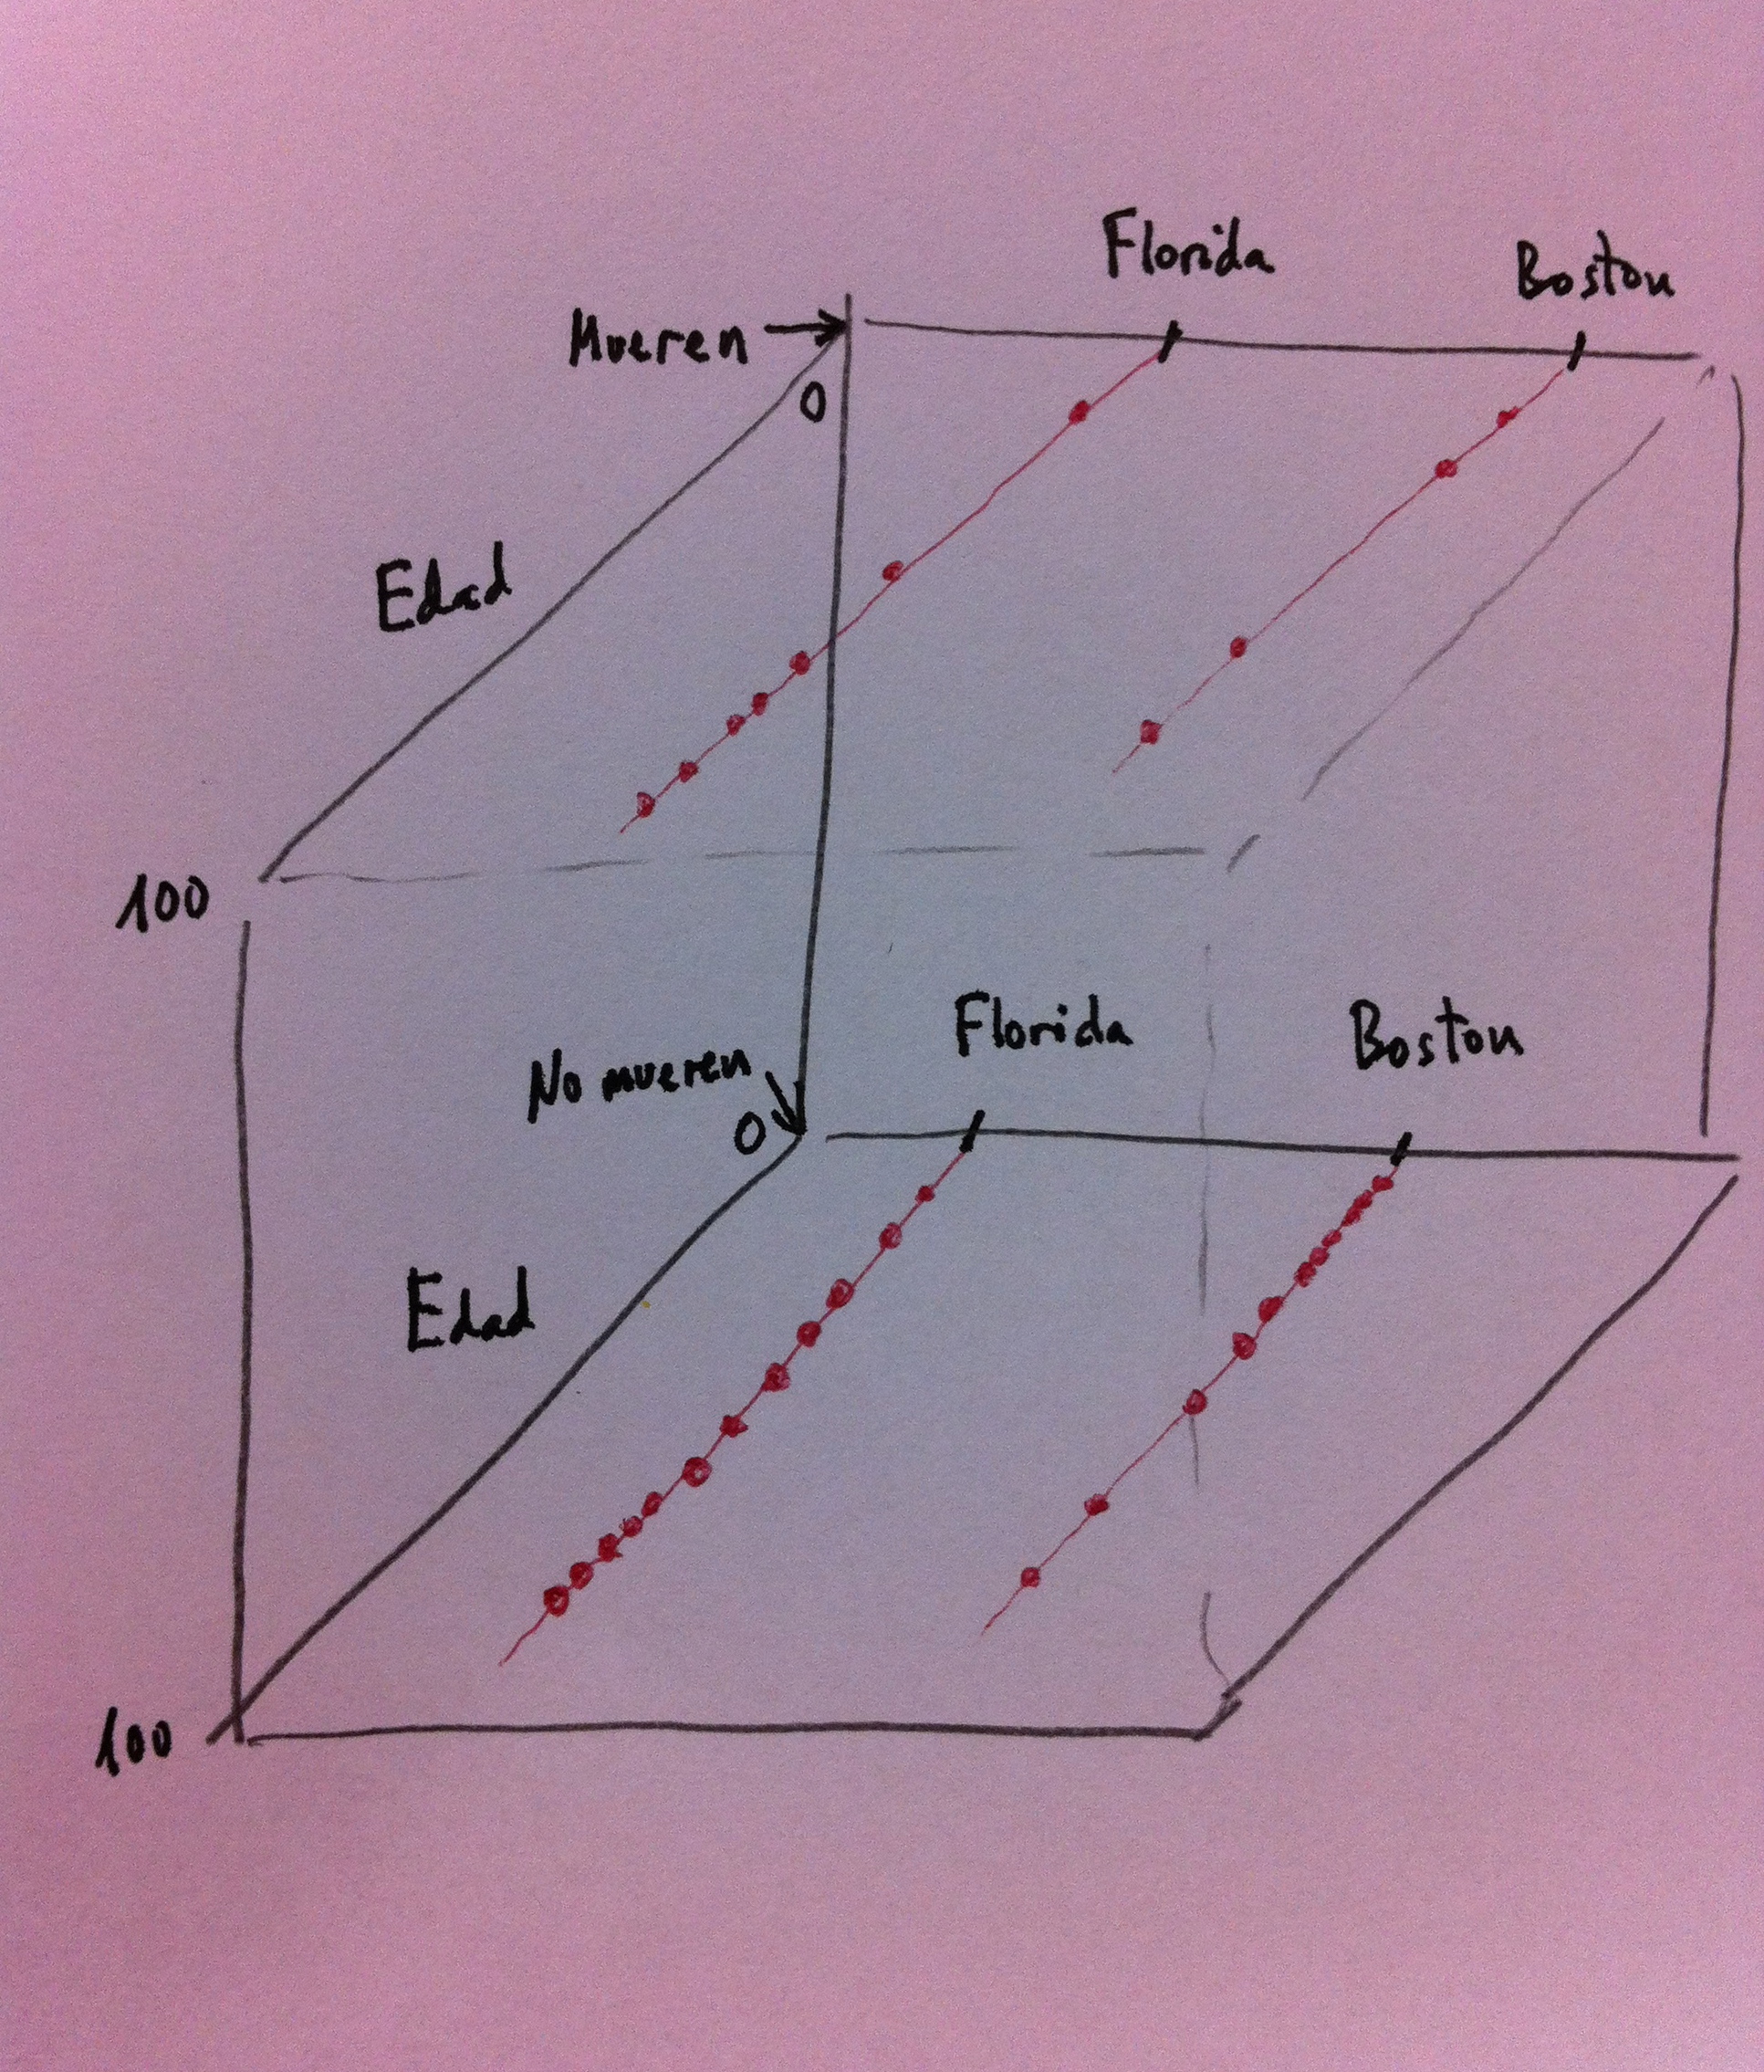 Florida
Boston
Mueren
0
Edad
100
Florida
Boston
No mueren
0
Edad
100